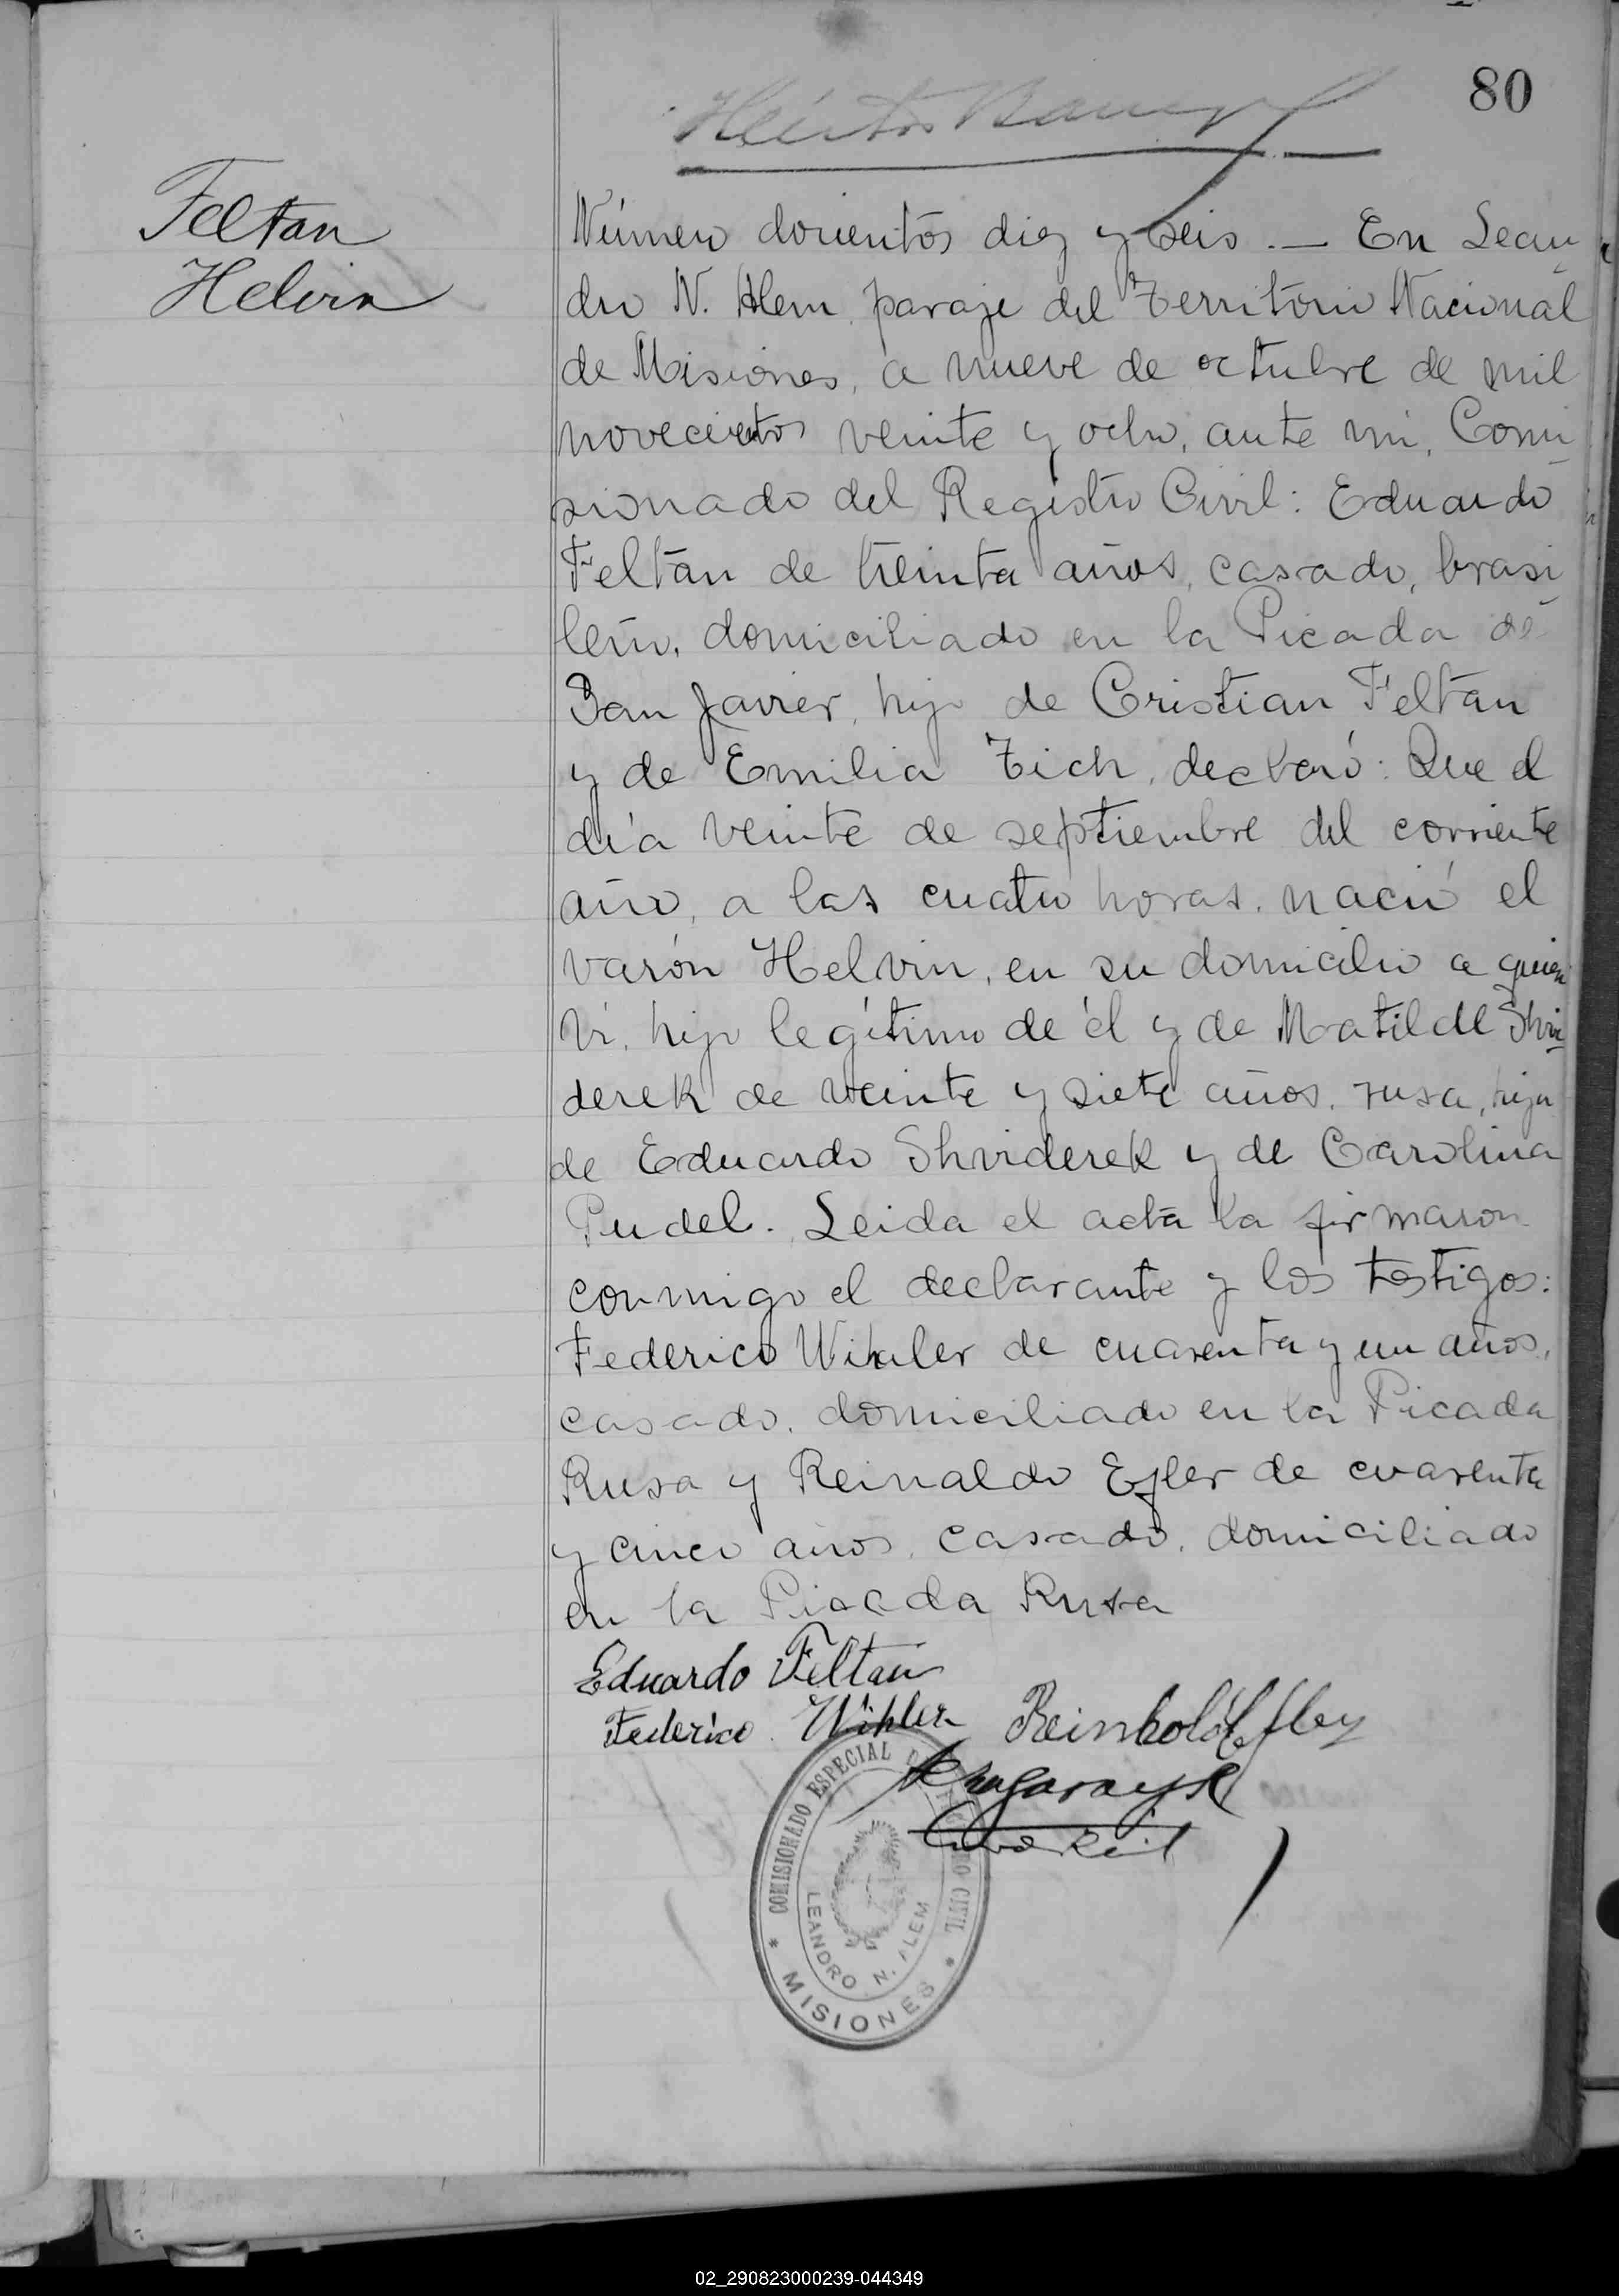 80
Feltan
Helvin
Número docientos diez y seis. — En Lean
dro N. Alem, paraje del Territorio Nacional
de Misiones, a nueve de octubre de mil
novecientos veinte y ocho, ante mi, Comi
sionado del Registro Civil: Eduardo
Feltan de treinta años, casado, brasi
leño, domiciliado en la Picada de
San Javier, hijo de Cristian Feltan
y de Emilia Tich, declaró: Que el
día veinte de septiembre del corriente
año, a las cuatro horas, nació el
varón Helvin, en su domicilio a quien
ví, hijo legítimo de él y de Matilde Shvi
derek de veinte y siete años, rusa, hija
de Eduardo Shviderek y de Carolina
Pudel. Leida el acta la firmaron
conmigo el declarante y los testigos:
Federico Wihler de cuarenta y un años,
casado, domiciliado en la Picada
Rusa y Reinaldo Efler de cuarenta
y cinco años, casado, domiciliado
en la Picada Rusa
Eduardo Feltan
Federico Wihler Reinhold Efler
COMISIONADO ESPECIAL DEL REGISTRO CIVIL
LEANDRO N. ALEM
* MISIONES *
02_290823000239-044349